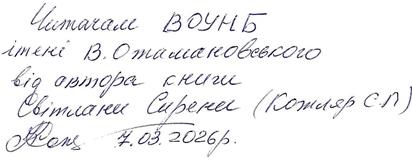 Читачам ВОУНБ
імені В. Отамановського
від автора книги
Світлани Сирени (Котляр С.П)
7.03.2026р.